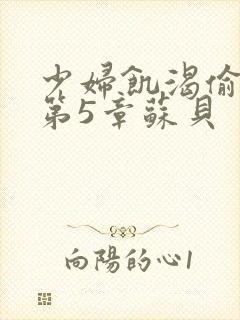 少婦飢渴偷
第5章蘇貝
向陽的心1